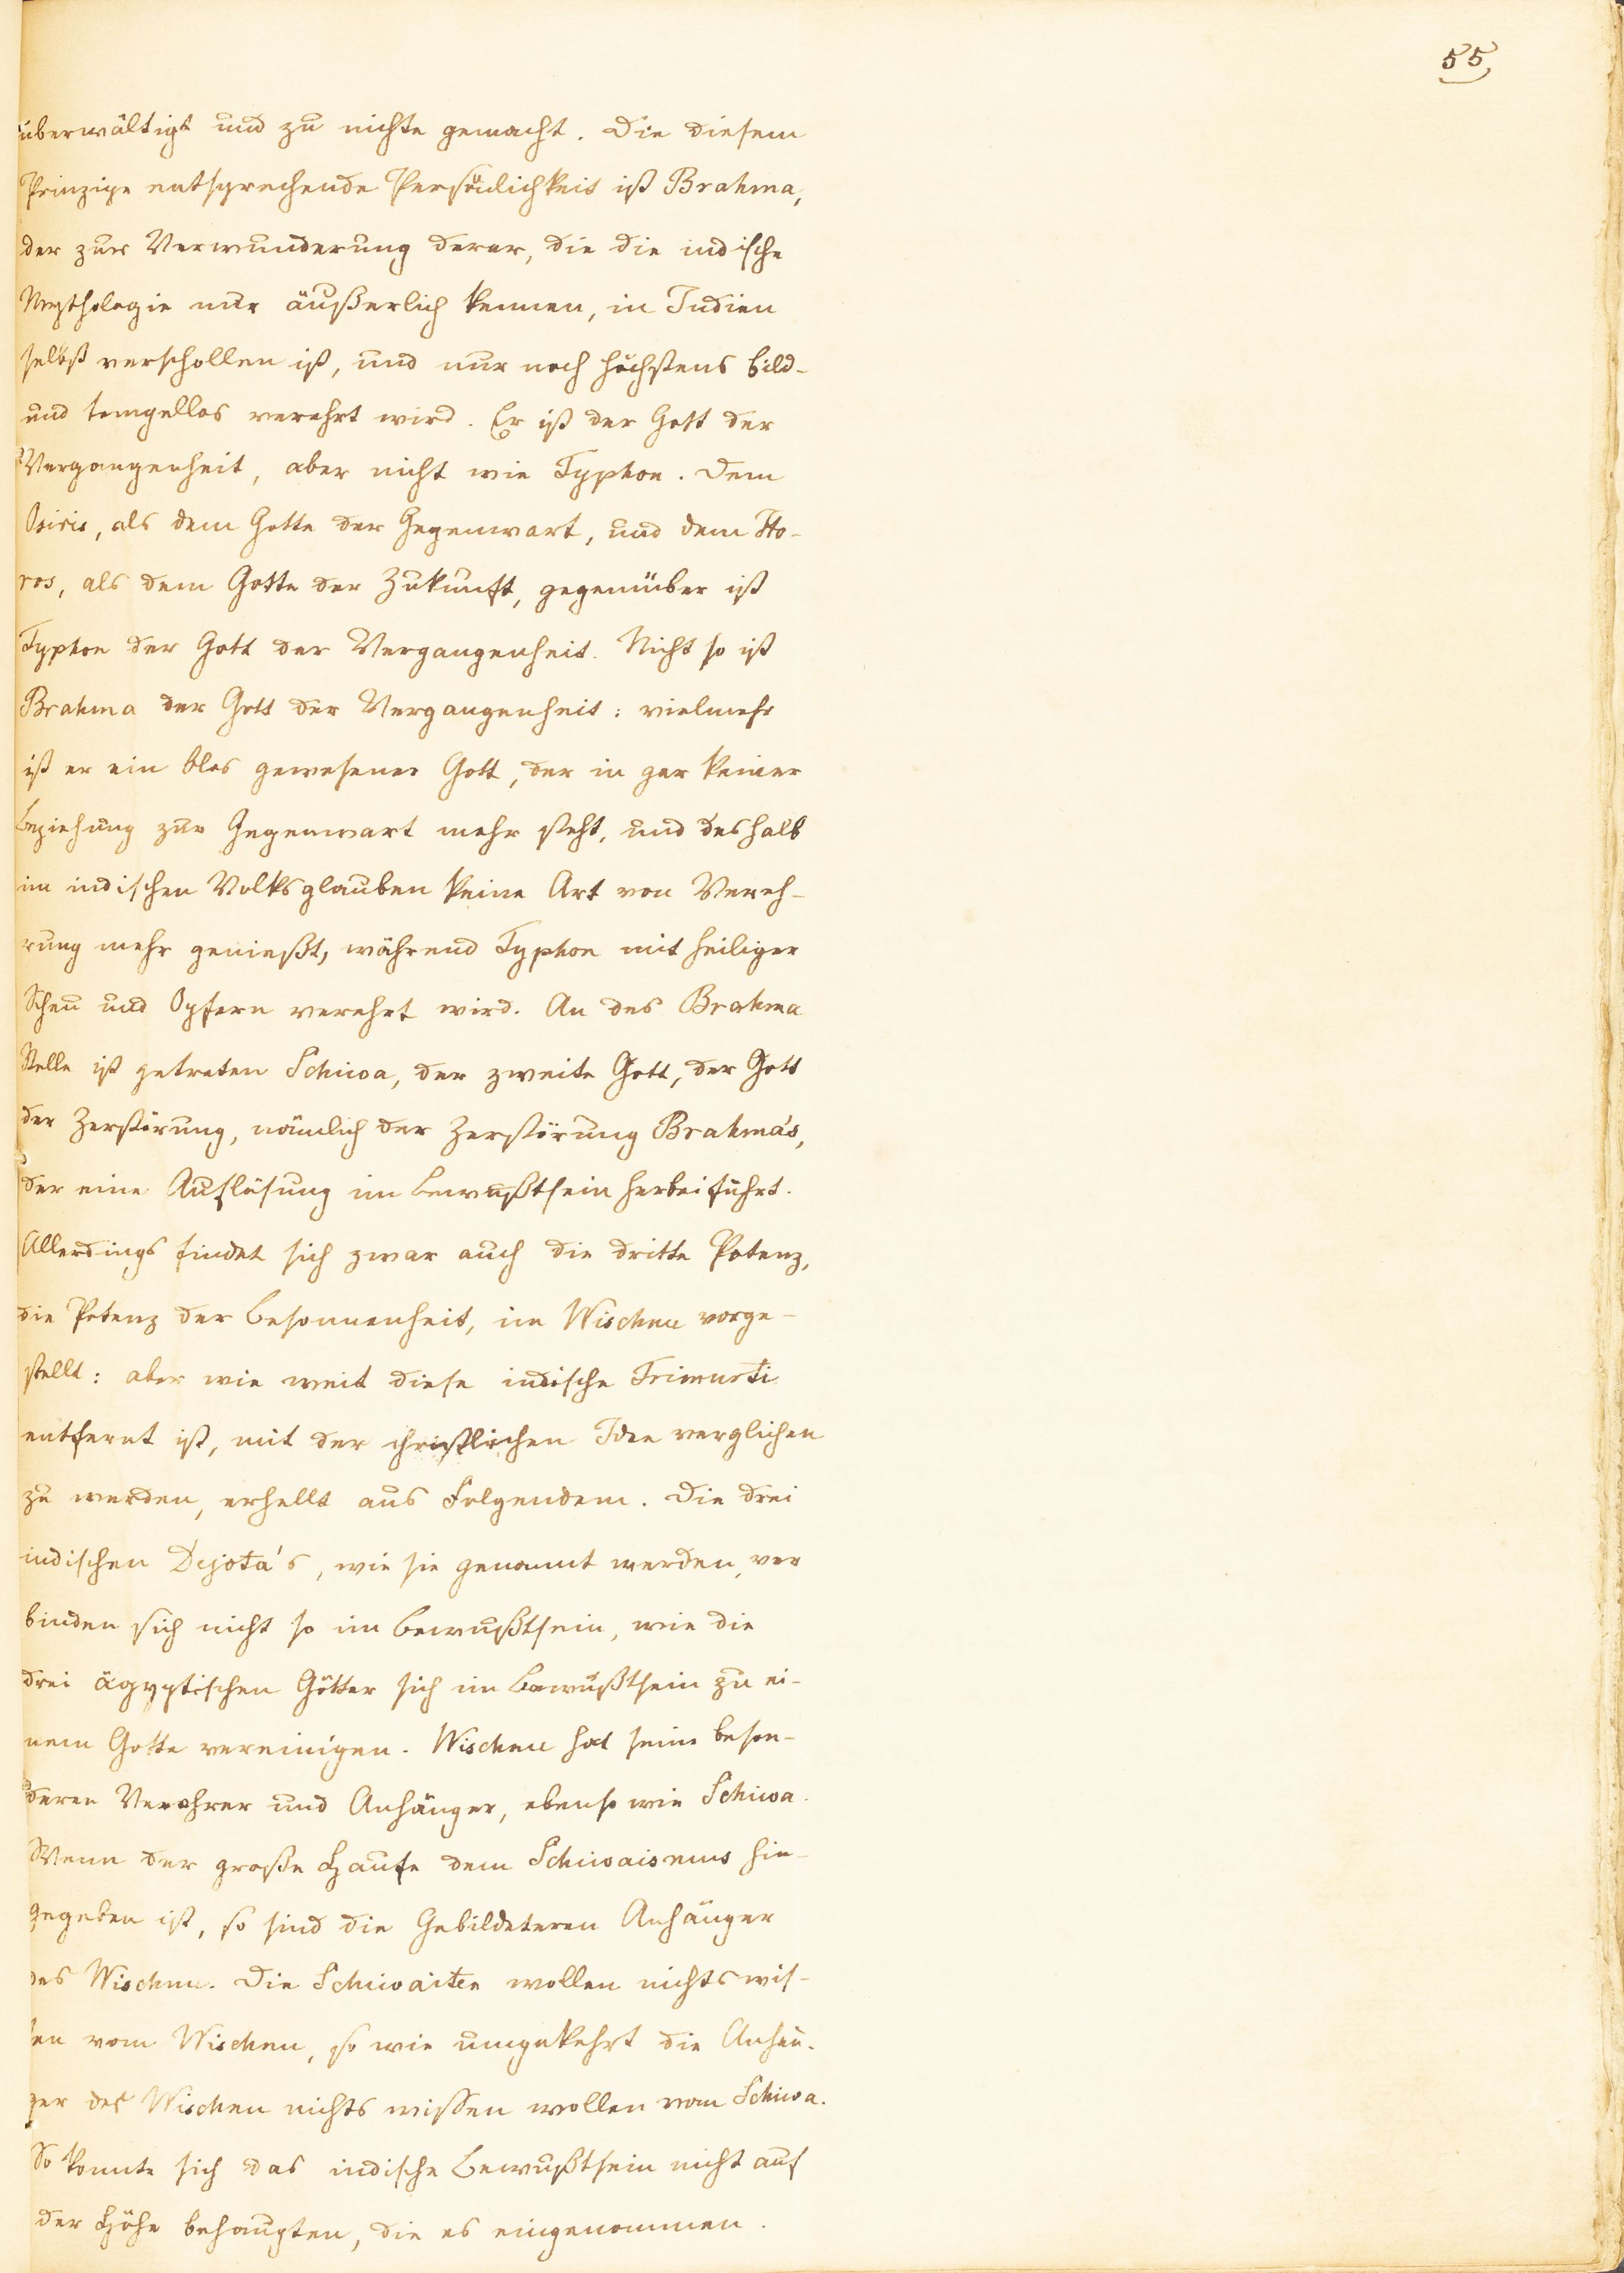 55,
überwältigt und zu nichte gemacht. Die diesem
Prinzipe entsprechende Persönlichkeit ist Brahma,
der zur Verwunderung derer, die die indische
Mythologie nur äußerlich kennen, in Indien
selbst verschollen ist, und nur noch höchstens bild-
und tempellos verehrt wird. Er ist der Gott der
Vergangenheit, aber nicht wie Typhon. Dem
Osiris, als dem Gotte der Gegenwart, und dem Ho-
ros, als dem Gotte der Zukunft, gegenüber ist
Typhon der Gott der Vergangenheit. Nicht so ist
Brahma der Gott der Vergangenheit: vielmehr
ist er ein blos gewesener Gott, der in gar keiner
Beziehung zur Gegenwart mehr steht, und deshalb
im indischen Volksglauben keine Art von Vereh-
rung mehr genießt, während Typhon mit heiliger
Scheu und Opfern verehrt wird. An des Brahma
Stelle ist getreten Schiwa, der zweite Gott, der Gott
der Zerstörung, nämlich der Zerstörung Brahma's,
der eine Auflösung im Bewußtsein herbeiführt.
Allerdings findet sich zwar auch die dritte Potenz,
die Potenz der Besonnenheit, im Wischnu vorge-
stellt: aber wie weit diese indische Trimurti
entfernt ist, mit der christlichen Idee verglichen
zu werden, erhellt aus Folgendem. Die drei
indischen Dejota's, wie sie genannt werden, ver
binden sich nicht so im Bewußtsein, wie die
drei ägyptischen Götter sich im Bewußtsein zu ei-
nem Gotte vereinigen. Wischnu hat seine beson-
deren Verehrer und Anhänger, ebenso wie Schiwa.
Wenn der große Haufe dem Schiwaismus hin-
gegeben ist, so sind die Gebildeteren Anhänger
des Wischnu. Die Schiwaiten wollen nichts wis-
sen vom Wischnu, so wie umgekehrt die Anhän-
ger des Wischnu nichts wissen wollen vom Schiwa.
So konnte sich das indische Bewußtsein nicht auf
der Höhe behaupten, die es eingenommen.